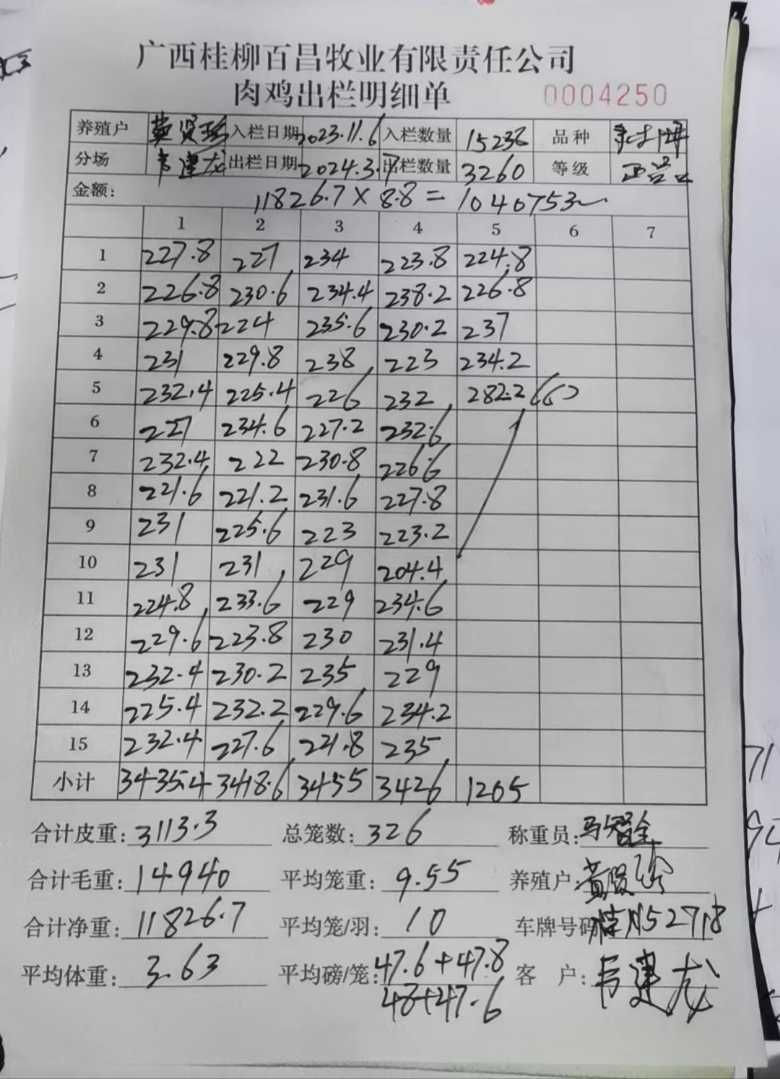 广西桂柳百昌牧业有限责任公司
肉鸡出栏明细单 0004250
养殖户 黄贤珍 入栏日期 2023.11.6 入栏数量 15238 品种
分场 韦建龙 出栏日期 2024.3.7 出栏数量 3260 等级
金额: 11826.7×8.8=1040753
1 2 3 4 5 6 7
1 227.8 227 234 223.8 224.8
2 226.8 230.6 234.4 238.2 226.8
3 229.8 224 235.6 230.2 237
4 231 229.8 238 223 234.2
5 232.4 225.4 226 232 282.2
6 227 234.6 227.2 232.6
7 232.4 222 230.8 226.6
8 221.6 221.2 231.6 227.8
9 231 225.6 223 223.2
10 231 231 229 204.4
11 224.8 233.6 229 234.6
12 229.6 223.8 230 231.4
13 232.4 230.2 235 229
14 225.4 232.2 229.6 234.2
15 232.4 227.6 221.8 235
小计 3435.4 3418.6 3455 3426 1205
合计皮重: 3113.3 总笼数: 326 称重员:
合计毛重: 14940 平均笼重: 9.55 养殖户:
合计净重: 11826.7 平均笼/羽: 10 车牌号码: 桂N52718
平均体重: 3.63 平均磅/笼: 47.6+47.8 客户: 韦建龙
48+47.6